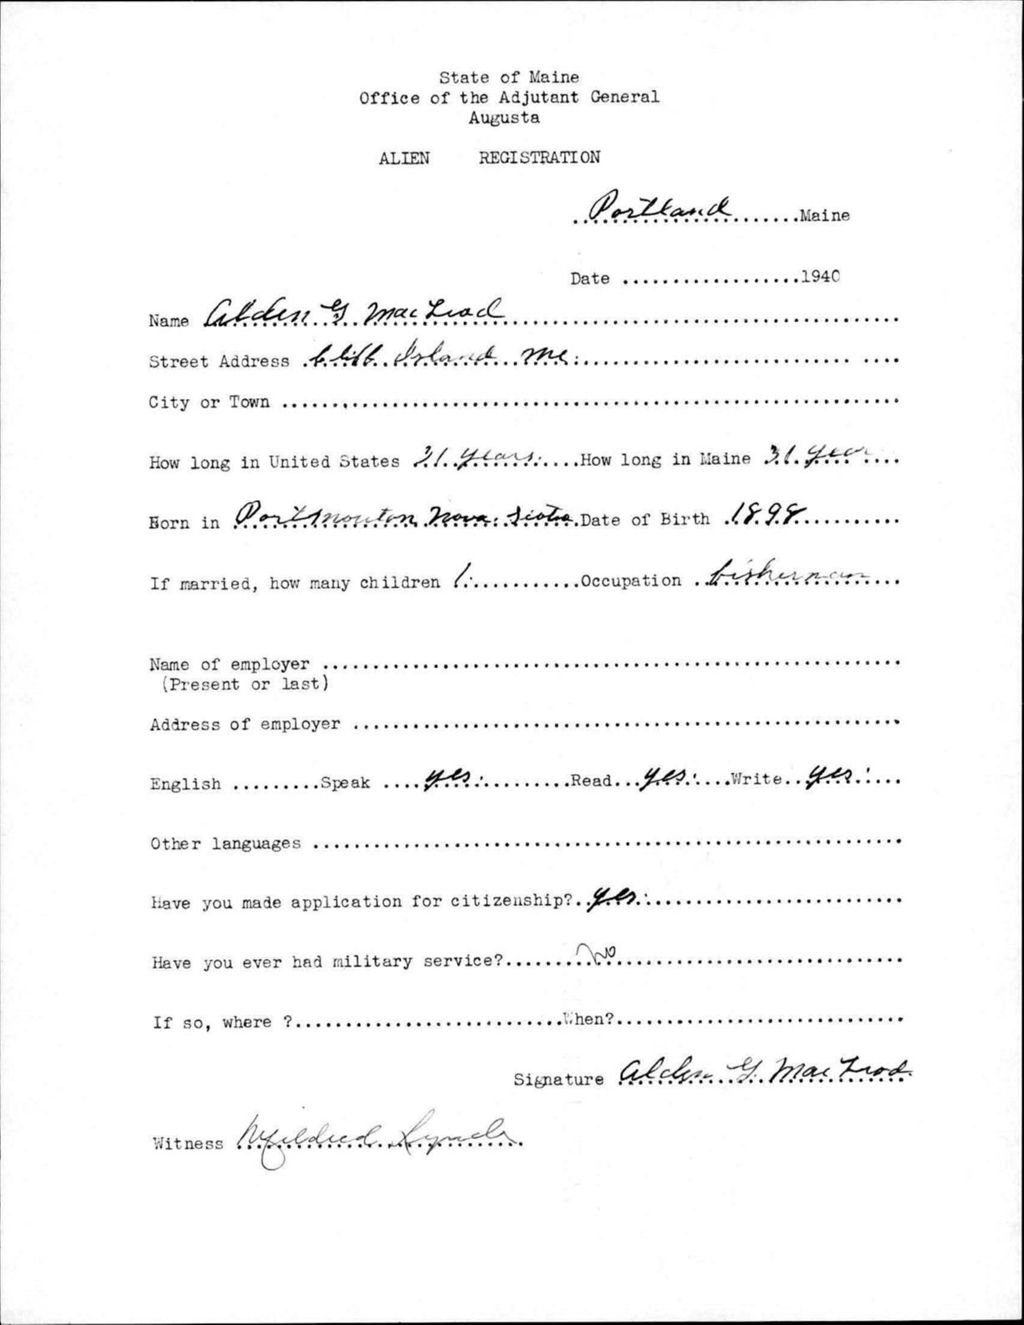 State of Maine
Office of the Adjutant General
Augusta
ALIEN REGISTRATION
Portland Maine
Date 1940
Name Alden G MacLeod
Street Address Cliff Island Me.
City or Town
How long in United States 31 years. How long in Maine 31 Years
Born in Port Mouton Nova Scotia Date of Birth 1898
If married, how many children 1. Occupation fisherman
Name of employer
(Present or last)
Address of employer
English Speak yes. Read yes. Write yes.
Other languages
Have you made application for citizenship? yes.
Have you ever had military service? No
If so, where ? When?
Signature Alden G. MacLeod.
Witness Mildred Lynch